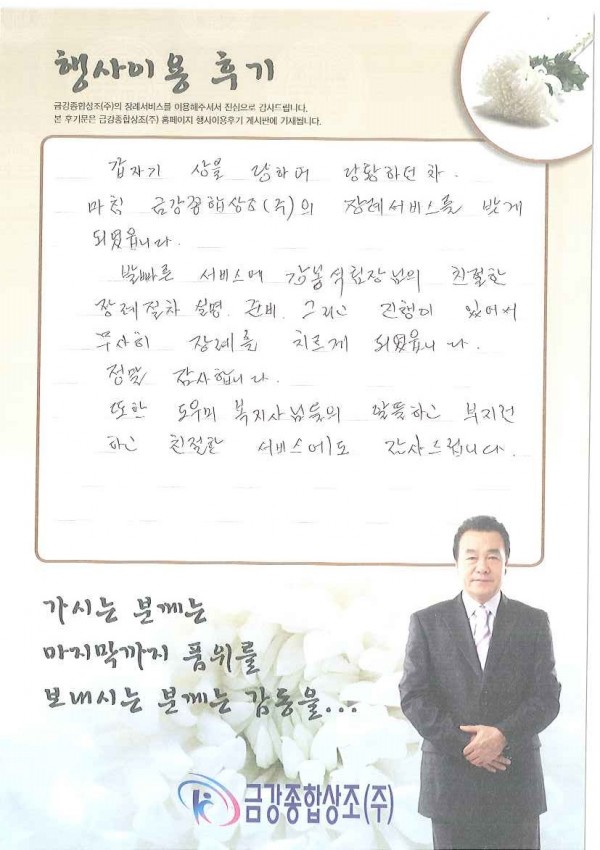 행사이용 후기
금강종합상조(주)의 장례서비스를 이용해주셔서 진심으로 감사드립니다.
본 후기문은 금강종합상조(주) 홈페이지 행사이용후기 게시판에 기재됩니다.
갑자기 상을 당하여 당황하던 차.
마침 금강종합상조(주)의 장례서비스를 받게
되었읍니다.
발빠른 서비스에 강봉석팀장님의 친절한
장례절차 설명. 준비. 그리고 진행이 있어서
무사히 장례를 치르게 되였읍니다.
정말 감사합니다.
또한 도우미 복지사님들의 알뜰하고 부지런
하고 친절한 서비스에도 감사드립니다.
가시는 분께는
마지막까지 품위를
보내시는 분께는 감동을...
금강종합상조(주)